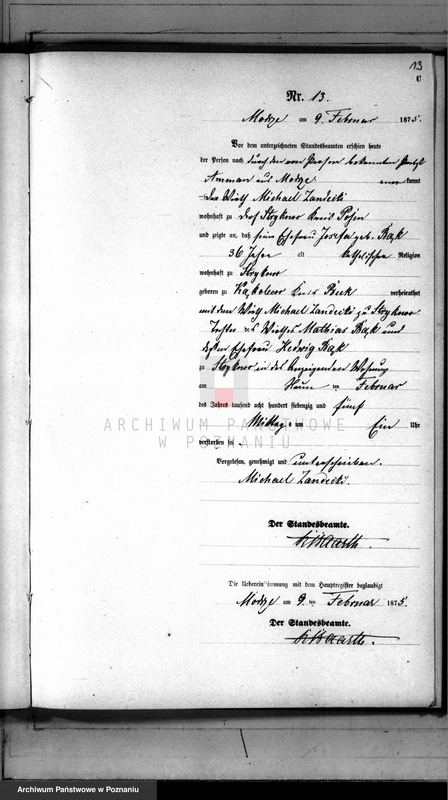 13
C
Nr. 13.
Modze am 9. Februar 1875.
Vor dem unterzeichneten Standesbeamten erschien heute
der Person nach durch den von Person bekannten
Amman aus Modze kannt
der Wirth Michael Zandecki
wohnhaft zu Dorf Strykowo Kreis Posen
und zeigte an, daß seine Ehefrau Josefa geb. Bąk
36 Jahre alt katholischer Religion
wohnhaft zu Strykowo
geboren zu Kreis verheirathet
mit dem Wirth Michael Zandecki zu Strykowo
Tochter des Wirthes Mathias Bąk und
dessen Ehefrau Hedwig Bąk
zu Strykowo in des Anzeigenden Wohnung
am Neun ten Februar
des Jahres tausend acht hundert siebenzig und fünf
Mittags um Ein Uhr
verstorben sei.
Vorgelesen, genehmigt und unterschrieben.
Michael Zandecki.
Der Standesbeamte.
Die Uebereinstimmung mit dem Hauptregister beglaubigt
Modze am 9. ten Februar 1875.
Der Standesbeamte.
ARCHIWUM PAŃSTWOWE
W POZNANIU
Archiwum Państwowe w Poznaniu